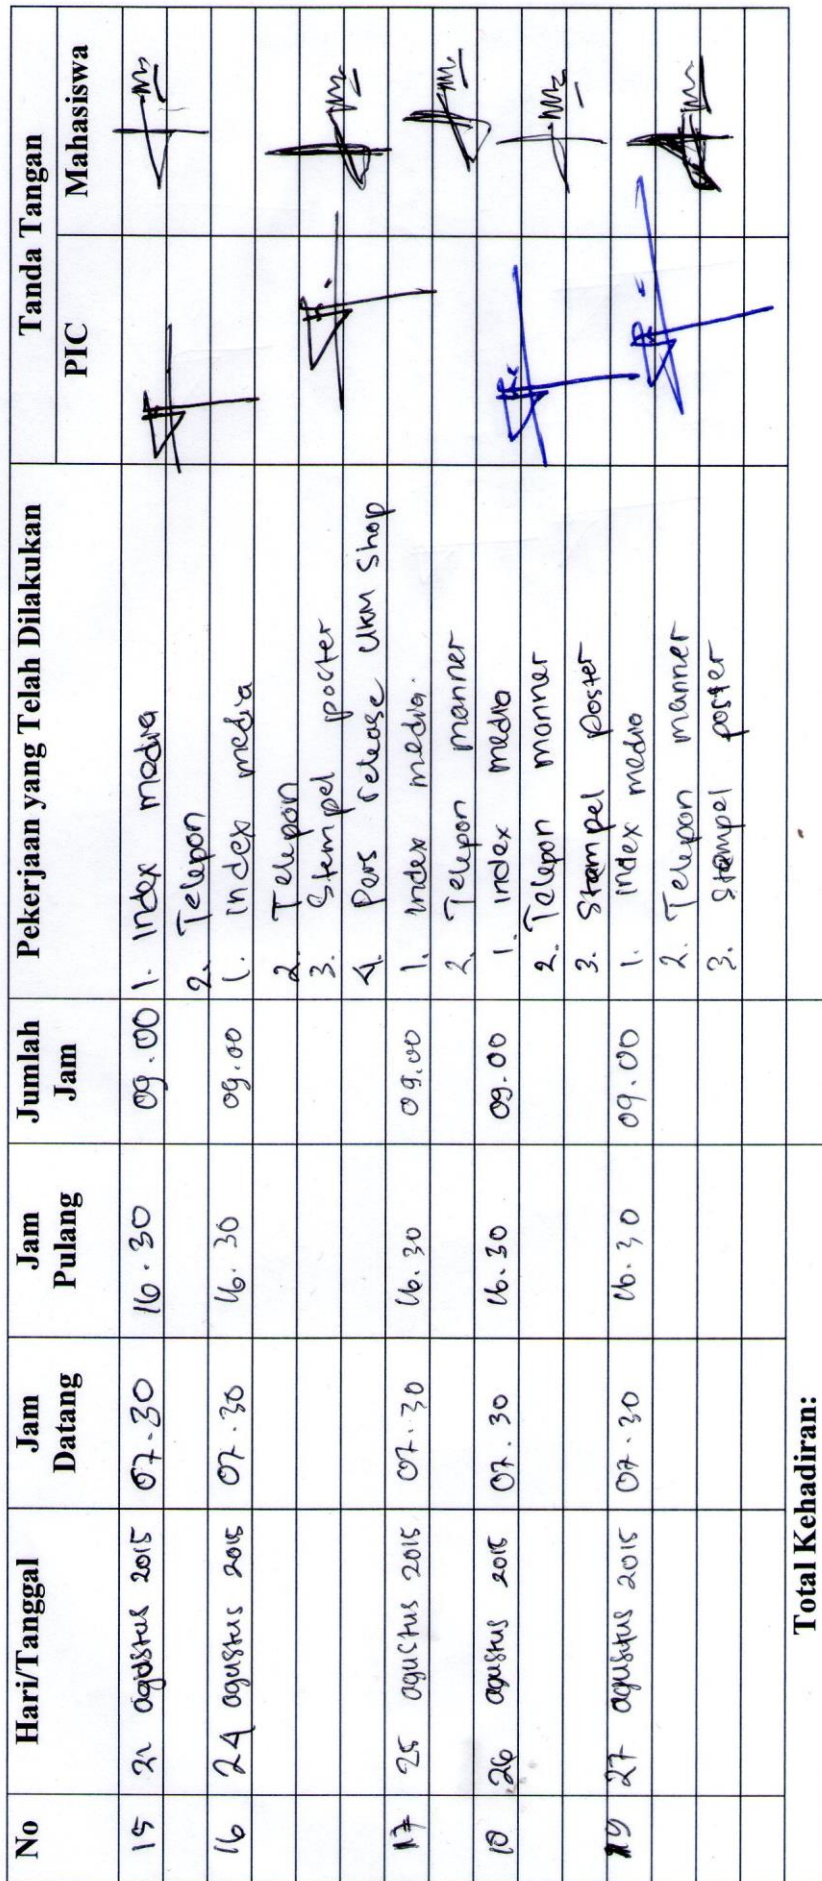 No Hari/Tanggal Jam Datang Jam Pulang Jumlah Jam Pekerjaan yang Telah Dilakukan Tanda Tangan
PIC Mahasiswa
15 21 agustus 2015 07.30 16.30 09.00 1. Index media
2. Telepon
16 24 agustus 2015 07.30 16.30 09.00 1. index media
2. Telepon
3. Stempel poster
4. Pers release UKM Shop
17 25 agustus 2015 07.30 16.30 09.00 1. index media.
2. Telepon manner
18 26 agustus 2015 07.30 16.30 09.00 1. index media
2. Telepon manner
3. Stampel poster
19 27 agustus 2015 07.30 16.30 09.00 1. index media
2. Telepon manner
3. Stampel poster
Total Kehadiran: